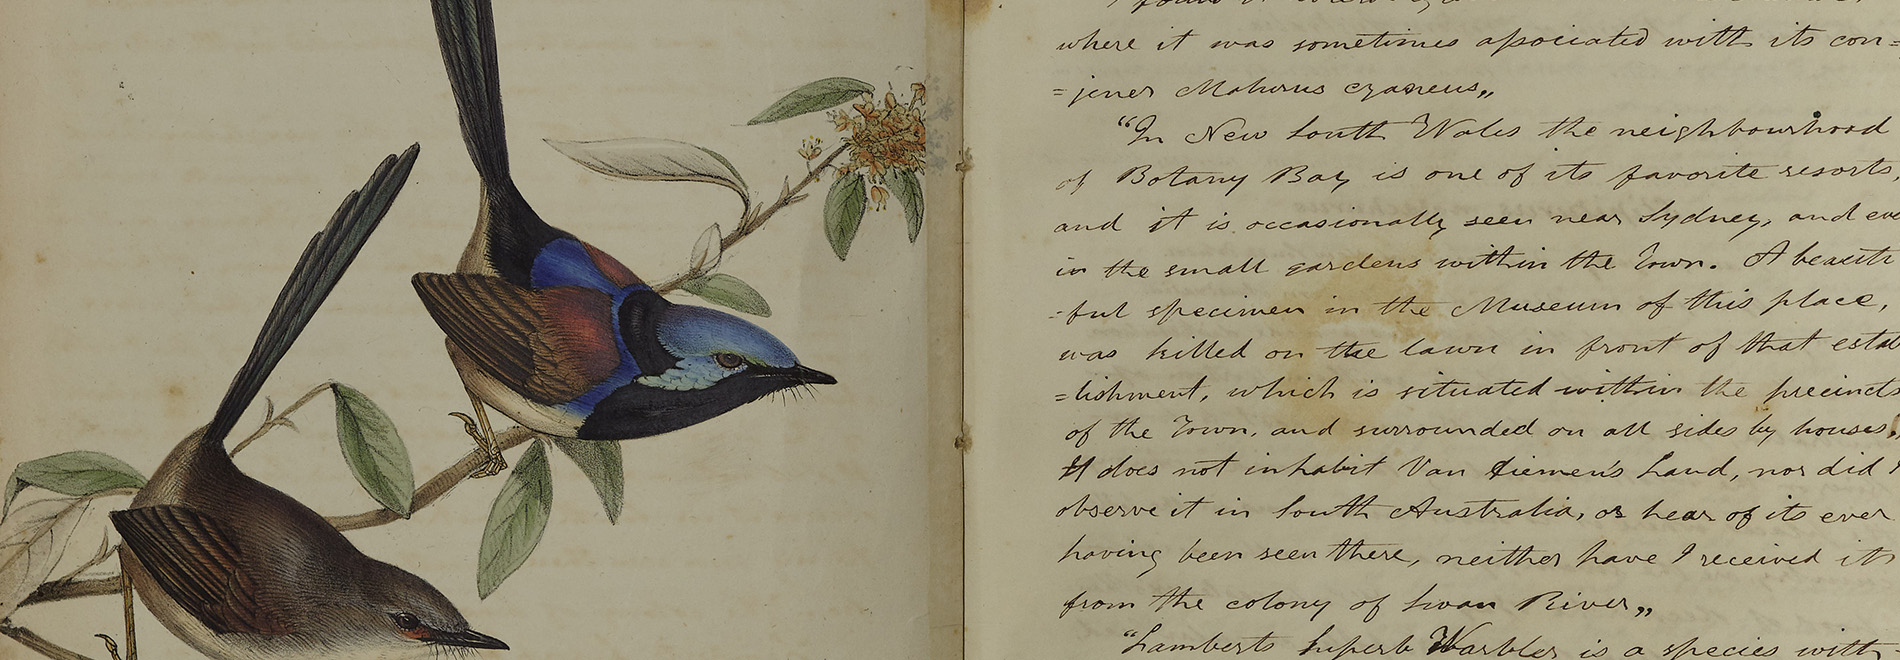 where it was sometimes associated with its con=
=jener Malurus cyaneus„
"In New South Wales the neighbourhood
of Botany Bay is one of its favorite resorts,
and it is occasionally seen near Sydney, and eve
in the small gardens within the Town. A beauti
-ful specimen in the Museum of this place,
was killed on the lawn in front of that estab
=lishment, which is situated within the precincts
of the Town, and surrounded on all sides by houses.
It does not inhabit Van Diemen's Land, nor did I
observe it in South Australia, or hear of its ever
having been seen there, neither have I received it
from the colony of Swan River„
"Lamberts Superb Warbler is a species with